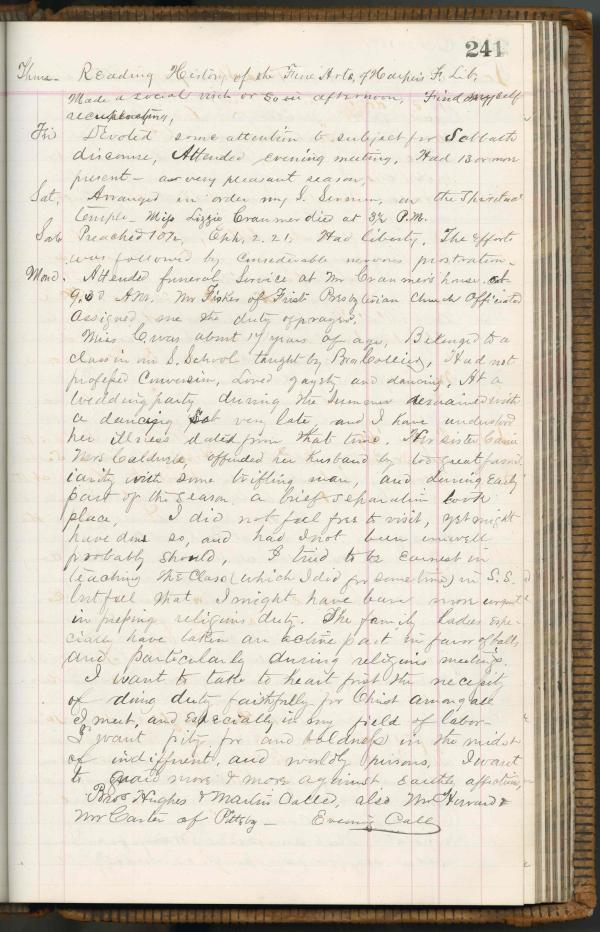 241
Thurs - Reading History of the Fine Arts, of Harper's F. Lib,
Made a social visit or so in afternoon, Find myself
recuperating,
Fri Devoted some attention to subject for Sabbath
discourse, Attended evening meeting. Had 13 or more
present - a very pleasant season,
Sat, Arranged in order my S. Sermon, on the Spiritual
temple - Miss Lizzie Cranmer die at 3½ P.M.
Sab Preached 10½, Eph, 2.21, Had liberty. The efforts
was followed by considerable nervous prostration -
Mond. Attended funeral Service at Mr Cranmer's house at
9.30 A.M. Mr Fisher of First Presbyterian Church Officiated
Assigned me the duty of prayer.
Miss C was about 17 years of age, Belonged to a
class in our S. School taught by Bro Collins, Had not
professed Conversion, Loved gayety and dancing, At a
wedding party during the Summer remained with
a dancing set very late, and I have understood
her illness dated from that time. Her sister
Mrs Caldwell, offended her husband by too great famil
iarity with some trifling man, and during early
part of the season a brief separation took
place, I did not feel free to visit, yet might
have done so, and had I not been unwell
probably should, I tried to be earnest in
teaching the Class (which I did for some time) in S.S.
but feel that I might have been more urgent
in pressing religious duty. The family ladies espe-
cially have taken an active part in favor of balls
and particularly during religious meetings.
I want to take to heart first the necessity
of doing duty faithfully for Christ among all
I meet, and especially in my field of labor -
I want pity for and boldness in the midst
of indifferent, and worldly persons, I want
to guard more & more against earthly affections,
Bros Hughes & Martin Called, also Mr Howard &
Mr Carter of Pittsby - Evening Call